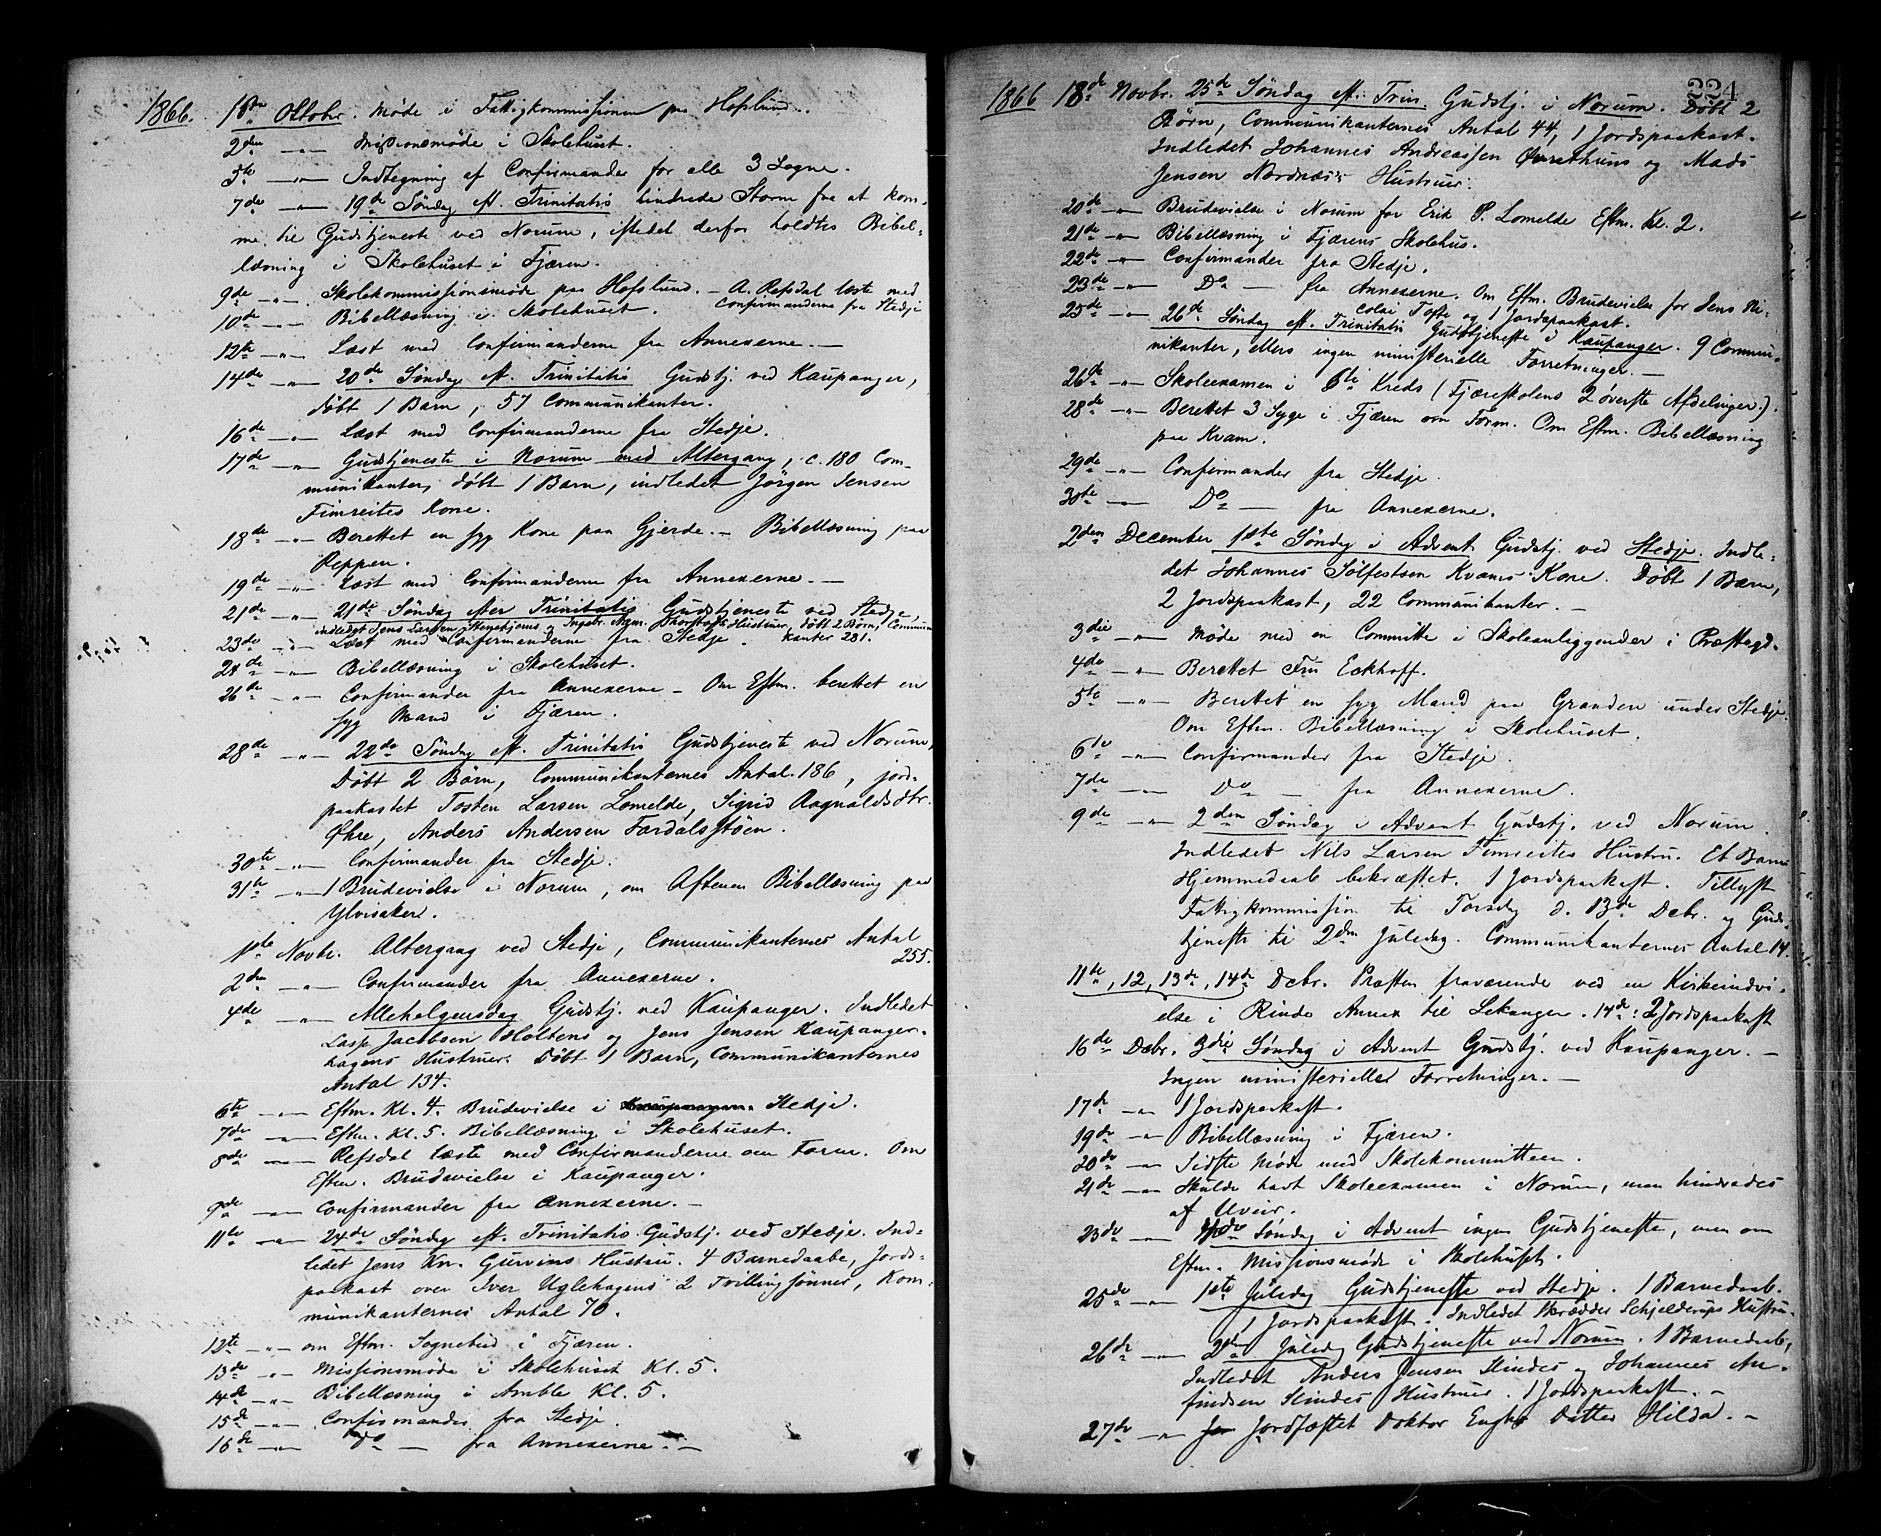 1866. 1ste Oktobr. Møde i Fattigkommissionen paa Hofslund.
2den —"— Missionsmøde i Skolehuset.
5te —"— Indtegning af Confirmander for alle 3 Sogne.
7de —"— 19de Søndag eft. Trinitatis hindrede Storm fra at kom-
me til Gudstjeneste ved Norum, istedet derfor holdtes Bibel-
læsning i Skolehuset i Fjæren.
9de —"— Skolekommissionsmøde paa Hofslund. — A. Refsdal læste med
Confirmanderne fra Stedje
10de —"— Bibellæsning i Skolehuset.
12te —"— Læst med Confirmanderne fra Annexerne. —
14de —"— 20de Søndag eft. Trinitatis Gudstj. ved Kaupanger,
døbt 1 Barn, 57 Communikanter.
16de —"— Læst med Confirmanderne fra Stedje.
17de —"— Gudstjeneste i Norum med Altergang, c. 180 Com-
munikanter, døbt 1 Barn, indledet Jørgen Jensen
Fimreites Kone.
18de —"— Berettet en syg Kone paa Gjerde. — Bibellæsning paa
Reppen.
19de —"— Læst med Confirmanderne fra Annexerne. —
21de —"— 21de Søndag efter Trinitatis Gudstjeneste ved Stedje,
indledet Jens Larsen og Ingebr. Hustruer, døbt 2 Børn, Communi-
kanter 281.
23de —"— Læst med Confirmanderne fra Stedje.
24de —"— Bibellæsning i Skolehuset.
26de —"— Confirmander fra Annexerne — Om Eftm. berettet en
syg Mand i Fjæren.
28de —"— 22de Søndag eft. Trinitatis Gudstjeneste ved Norum,
Døbt 2 Børn, Communikanternes Antal 186, jord-
paakastet Tosten Larsen Lomelde, Sigrid Aagnaldsdtr.
Øhre, Anders Andersen Færdalsstøen.
30te —"— Confirmander fra Stedje.
31te —"— 1 Brudevielse i Norum, om Aftenen Bibellæsning paa
Ylvisaker.
1ste Novbr. Altergang ved Stedje, Communikanternes Antal
255.
2den —"— Confirmander fra Annexerne.
4de —"— Allehelgensdag Gudstj. ved Kaupanger. Indledet
Lasse Jacobsen Holtens og Jens Jensen Kaupanger-
hagens Hustruer. Døbt 1 Barn, Communikanternes
Antal 134.
6te —"— Eftm. Kl. 4. Brudevielse i Kaupanger. Stedje.
7de —"— Eftm. Kl. 5. Bibellæsning i Skolehuset.
8de —"— Refsdal læste med Confirmanderne om Form. Om
Eftm. Brudevielse i Kaupanger.
9de —"— Confirmander fra Annexerne. —
11te —"— 24de Søndag eft. Trinitatis Gudstj. ved Stedje. Ind-
ledet Jens Kn. Gurvins Hustru. 4 Barnedaabe, Jords-
paakast over Iver Uglehagens 2 Tvillingsønner, Kom-
munikanternes Antal 70.
12te —"— om Eftm. Sognebud i Fjæren.
13de —"— Missionsmøde i Skolehuset Kl. 5.
14de —"— Bibellæsning i Amble Kl. 5.
15de —"— Confirmander fra Stedje.
16de —"— Do — fra Annexerne. —
224
1866 18de Novbr. 25de Søndag eft. Trin. Gudstj. i Norum. Døbt 2
Børn, Communikanternes Antal 44, 1 Jordspaakast.
Indledet Johannes Andreassen Øvrethuns og Mads
Jensen Nordnæs's Hustruer.
20de —"— Brudevielse i Norum for Erik P. Lomelde Eftm. Kl. 2.
21de —"— Bibellæsning i Fjærens Skolehus.
22de —"— Confirmander fra Stedje.
23de —"— Do — fra Annexerne. Om Eftm. Brudevielse for Jens Ni-
colai Tofte og 1 Jordspaakast.
25de —"— 26de Søndag eft. Trinitatis Gudstjeneste i Kaupanger. 9 Commu-
nikanter, ellers ingen ministerielle Forretninger. —
26de —"— Skoleexamen i 6te Kreds (Fjæreskolens 2 øverste Afdelinger.).
28de —"— Berettet 3 Syge i Fjæren om Form. Om Eftm. Bibellæsning
paa Kvam.
29de —"— Confirmander fra Stedje.
30te —"— Do — fra Annexerne.
2den December 1ste Søndag i Advent Gudstj. ved Stedje. Indle-
det Johannes Sølfestsen Kvams Kone. Døbt 1 Barn,
2 Jordspaakast, 22 Communikanter. —
3die —"— Møde med en Committe i Skoleanliggender i Præstegd.
4de —"— Berettet Fru Eckhoff.
5te —"— Berettet en syg Mand paa Granden under Stedje.
Om Eftm. Bibellæsning i Skolehuset.
6te —"— Confirmander fra Stedje.
7de —"— Do — fra Annexerne.
9de —"— 2den Søndag i Advent Gudstj. ved Norum.
Indledet Nils Larsen Fimreites Hustru. Et Barns
Hjemmedaab bekræftet. 1 Jordspaakast. Tillyst
Fattigkommission til Torsdag d. 13de Decbr. og Guds-
tjeneste til 2den Juledag. Communikanternes Antal 14.
11te, 12, 13de, 14de Decbr. Præsten fraværende ved en Kirkeindvi-
else i Rinde Annex til Lekanger. 14de: 2 Jordspaakast
16de Decbr. 3die Søndag i Advent Gudstj. ved Kaupanger. —
Ingen ministerielle Forretninger. —
17de —"— 1 Jordspaakast.
19de —"— Bibellæsning i Fjæren.
20de —"— Sidste Møde med Skolekommitteen.
21de —"— Skulde havt Skoleexamen i Norum, men hindredes
af Uveir.
23de —"— 4de Søndag i Advent ingen Gudstjeneste, men om
Eftm. Missionsmøde i Skolehuset.
25de —"— 1ste Juledag Gudstjeneste ved Stedje. 1 Barnedaab.
1 Jordspaakast. Indledet Skrædder Schjelderups Hustru.
26de —"— 2den Juledag Gudstjeneste ved Norum. 1 Barnedaab,
Indledet Anders Jensen Slindes og Johannes An-
findsen Slindes Hustruer. 1 Jordspaakast. —
27de —"— Jordfæstet Doktor Enghs Datter Hilda. —